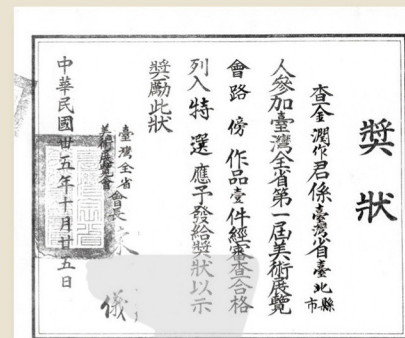 獎狀
查金潤作君係臺灣省臺北縣市
人參加臺灣全省第一屆美術展覽
會路傍作品壹件經審查合格
列入特選應予發給獎狀以示
獎勵此狀
臺灣全省美術展覽會會長
儀
中華民國卅五年十月廿五日